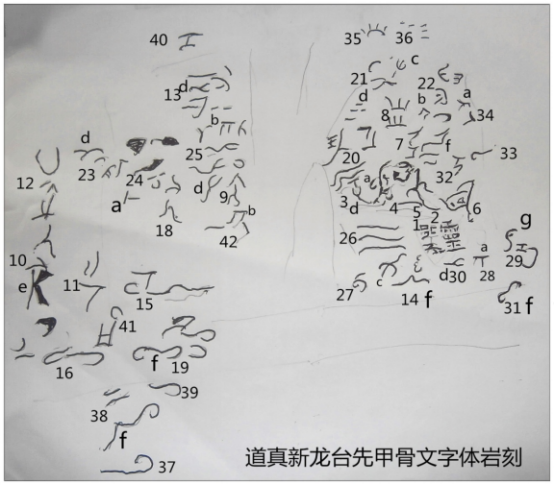 35 36
40
c
21 22
d
13 d b a
8 34
b
d 7 f
25 33
20
23 24 32
12 d a
a 9 3 d 4 5 2 6
b 1 g
18
42 26
10 a
e 11 c 15 c d 30 28 29
27 14 f 31 f
41
16 f 19
39
38
f
37
道真新龙台先甲骨文字体岩刻